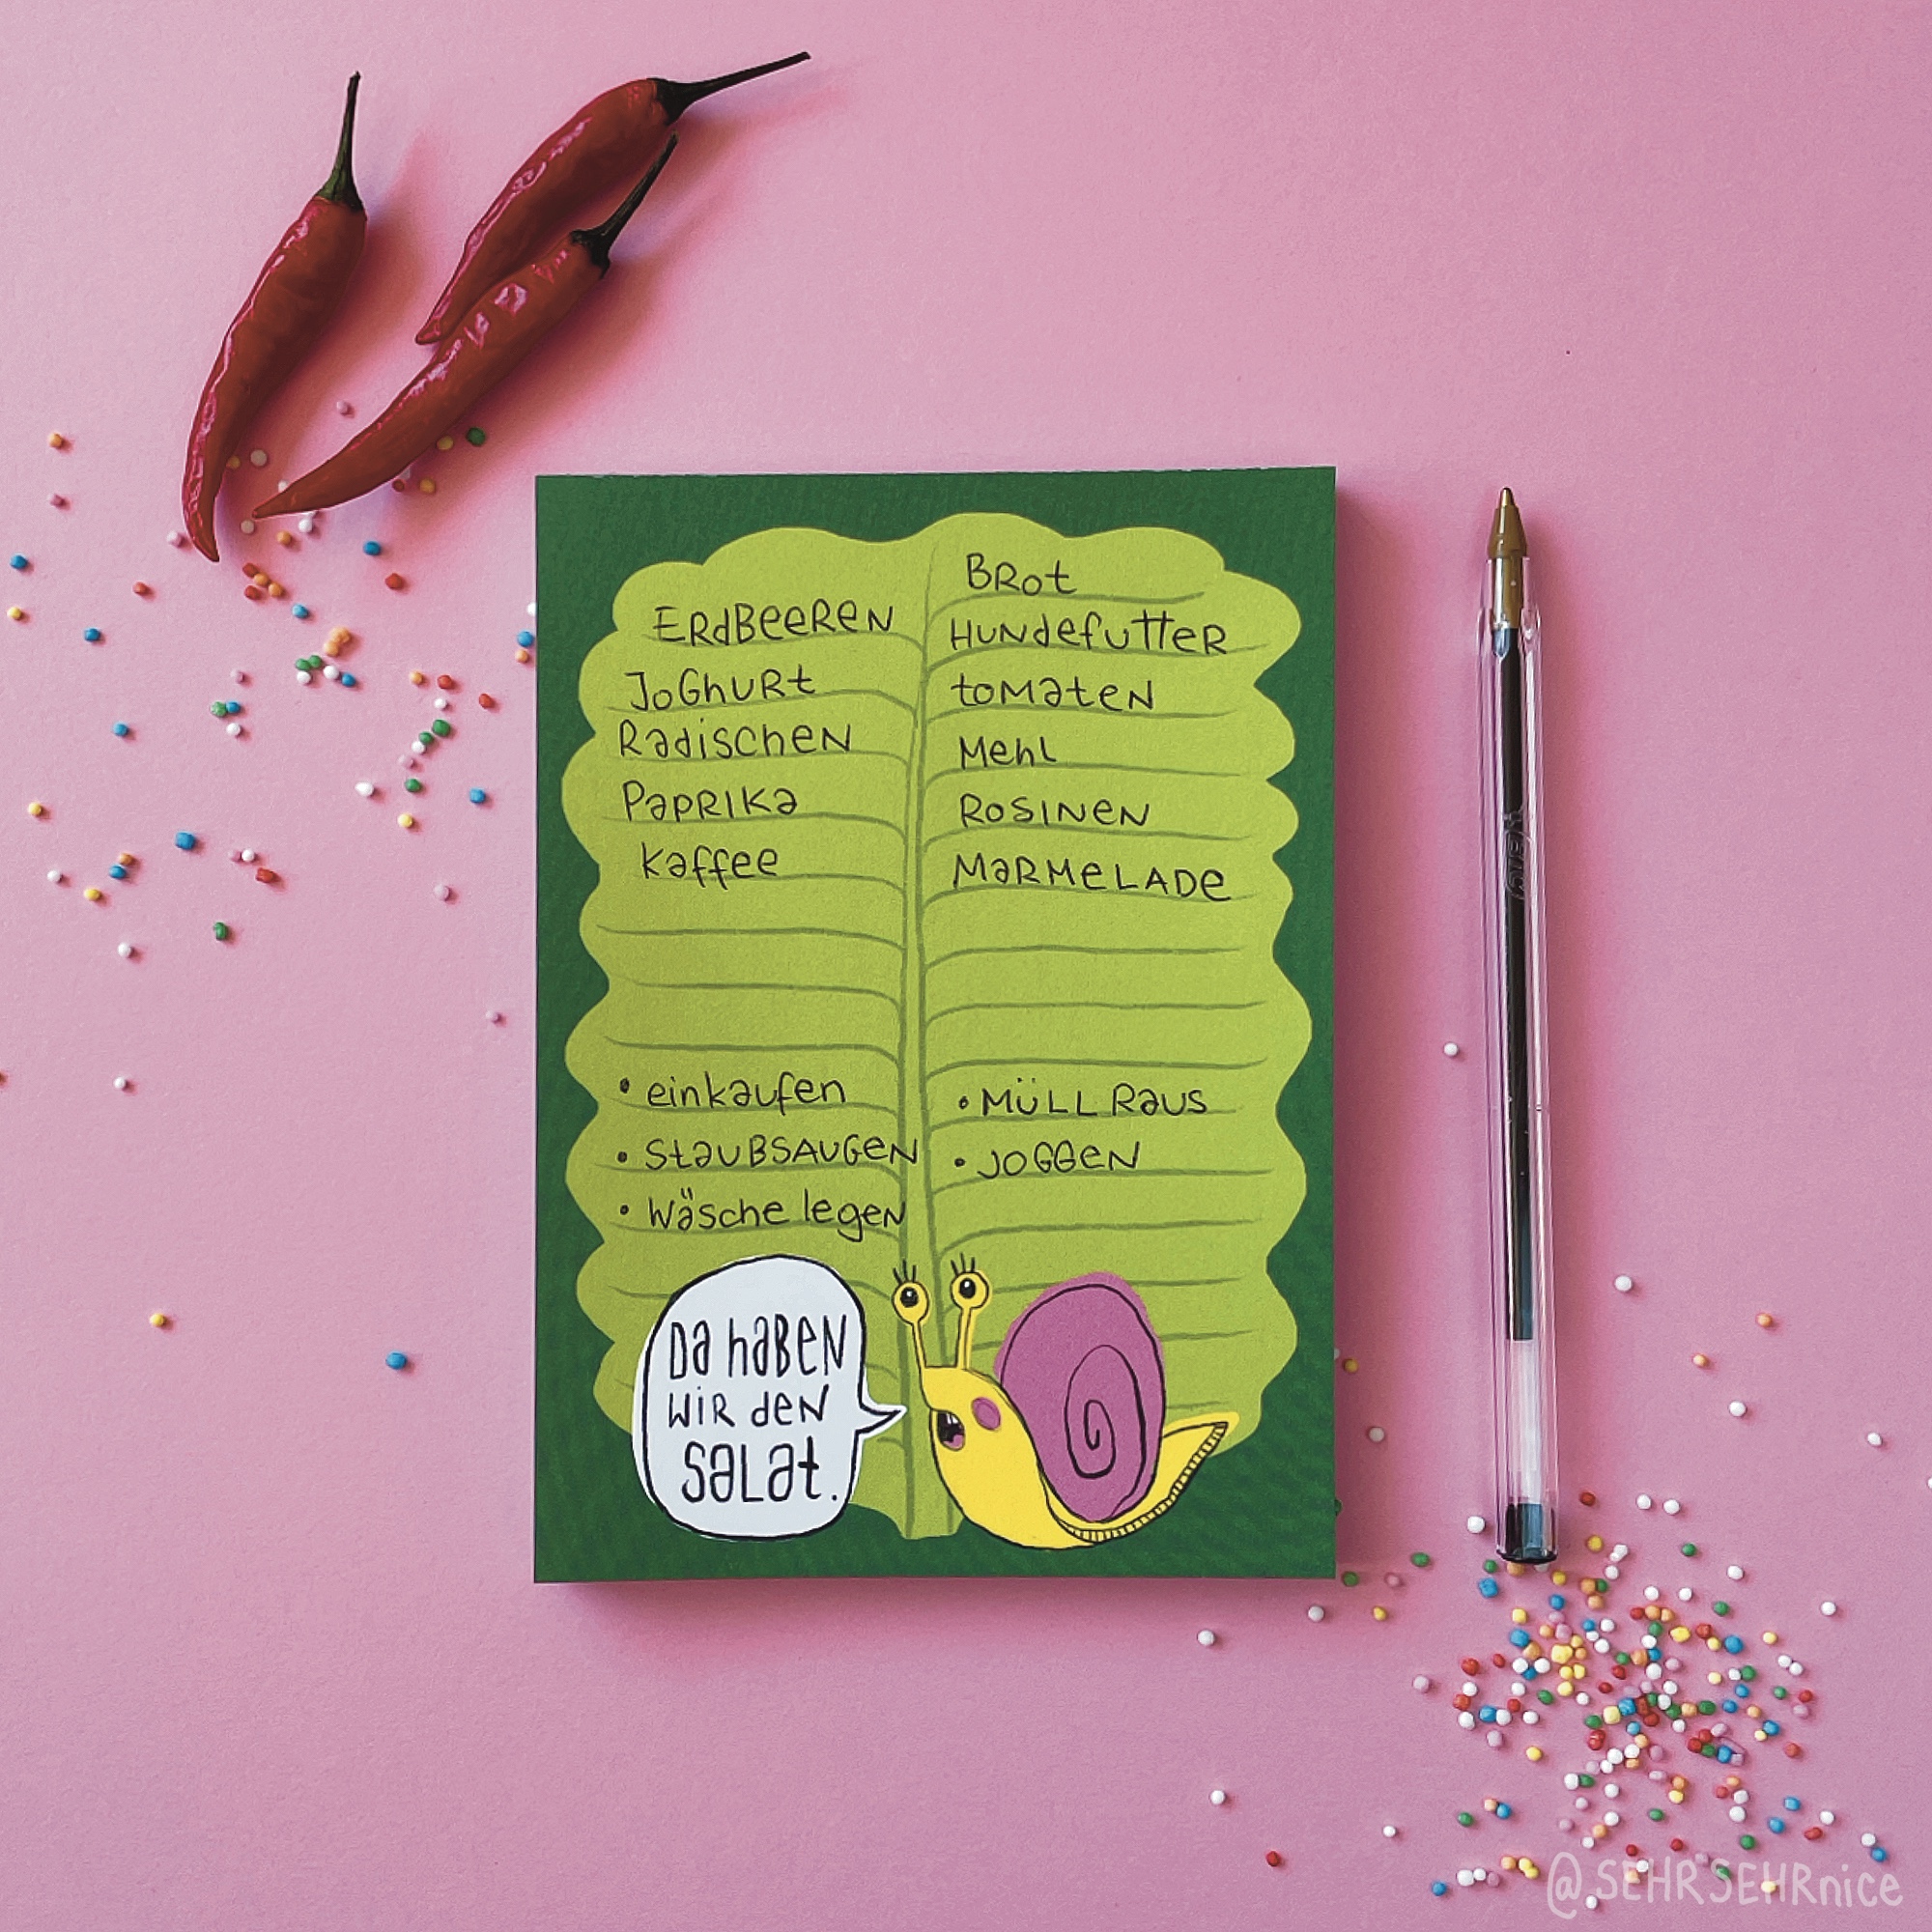 ERdBeeReN
JoGhURt
RadischeN
PapRIKa
Kaffee
BRot
HuNdefutteR
toMateN
MehL
RoSINeN
MaRMeLADe
• einkaufen
• StauBSAUGeN
• Wäsche legeN
• MüLL Raus
• JoGGeN
Da haBeN
WiR deN
SaLat.
@SEHRSEHRnice